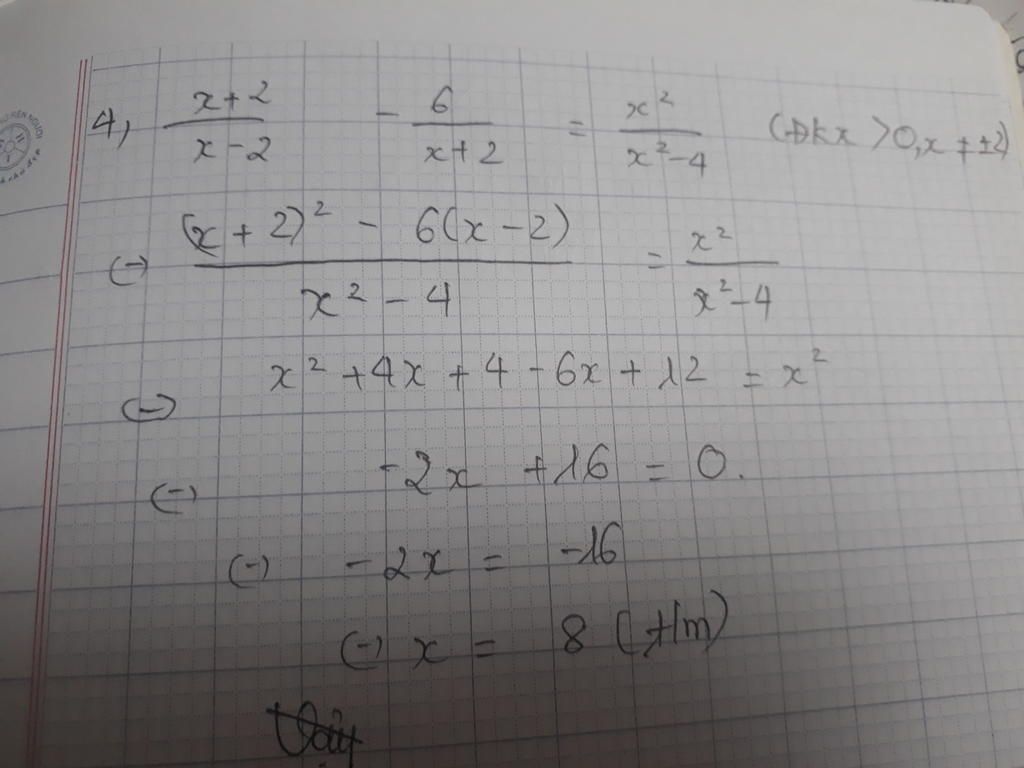 4, \frac{x+2}{x-2} - \frac{6}{x+2} = \frac{x^2}{x^2-4} (ĐKx >0, x ≠ ±2)
(-) \frac{(x+2)^2 - 6(x-2)}{x^2-4} = \frac{x^2}{x^2-4}
(-) x² + 4x + 4 - 6x + 12 = x²
(-) -2x + 16 = 0.
(-) -2x = -16
(-) x = 8 (t/m)